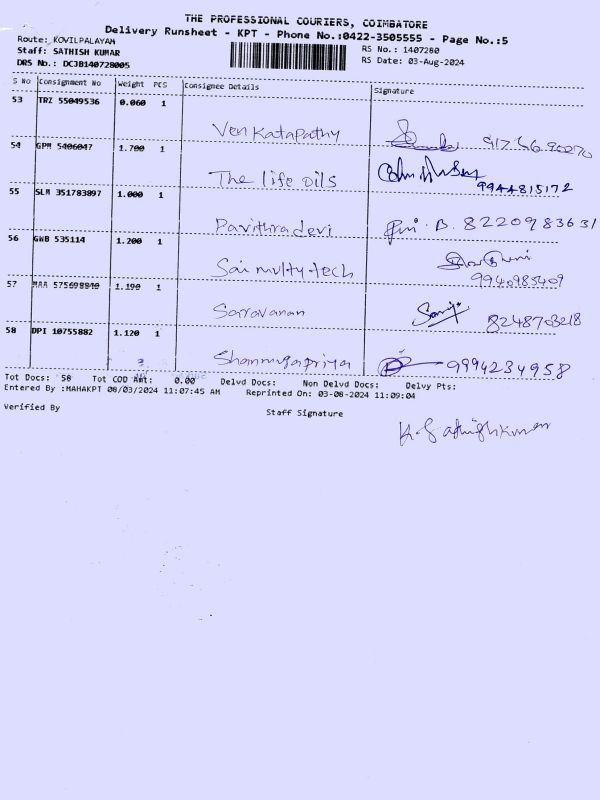 THE PROFESSIONAL COURIERS, COIMBATORE
Delivery Runsheet - KPT - Phone No.:0422-3505555 - Page No.:5
Route: KOVILPALAYAM
RS No.: 1407280
Staff: SATHISH KUMAR
RS Date: 03-Aug-2024
DRS No.: DCJB140728005
S No Consignment No Weight PCS Consignee Details Signature
53 TRZ 55049536 0.060 1
Venkatapathy
54 GPM 5406047 1.700 1
The life oils 9944815172
55 SLM 351783897 1.000 1
Pavithradevi B. 8220983631
56 GWB 535114 1.200 1
Sai multy-tech 9940985409
57 MAA 575698840 1.190 1
Sarravanan 8248703218
58 DPI 10755882 1.120 1
Shanmugapriya 9994234958
Tot Docs: 58 Tot COD Amt: 0.00 Delvd Docs: Non Delvd Docs: Delvy Pts:
Entered By :MAHAKPT 08/03/2024 11:07:45 AM Reprinted On: 03-08-2024 11:09:04
Verified By Staff Signature
K. Sathishkumar